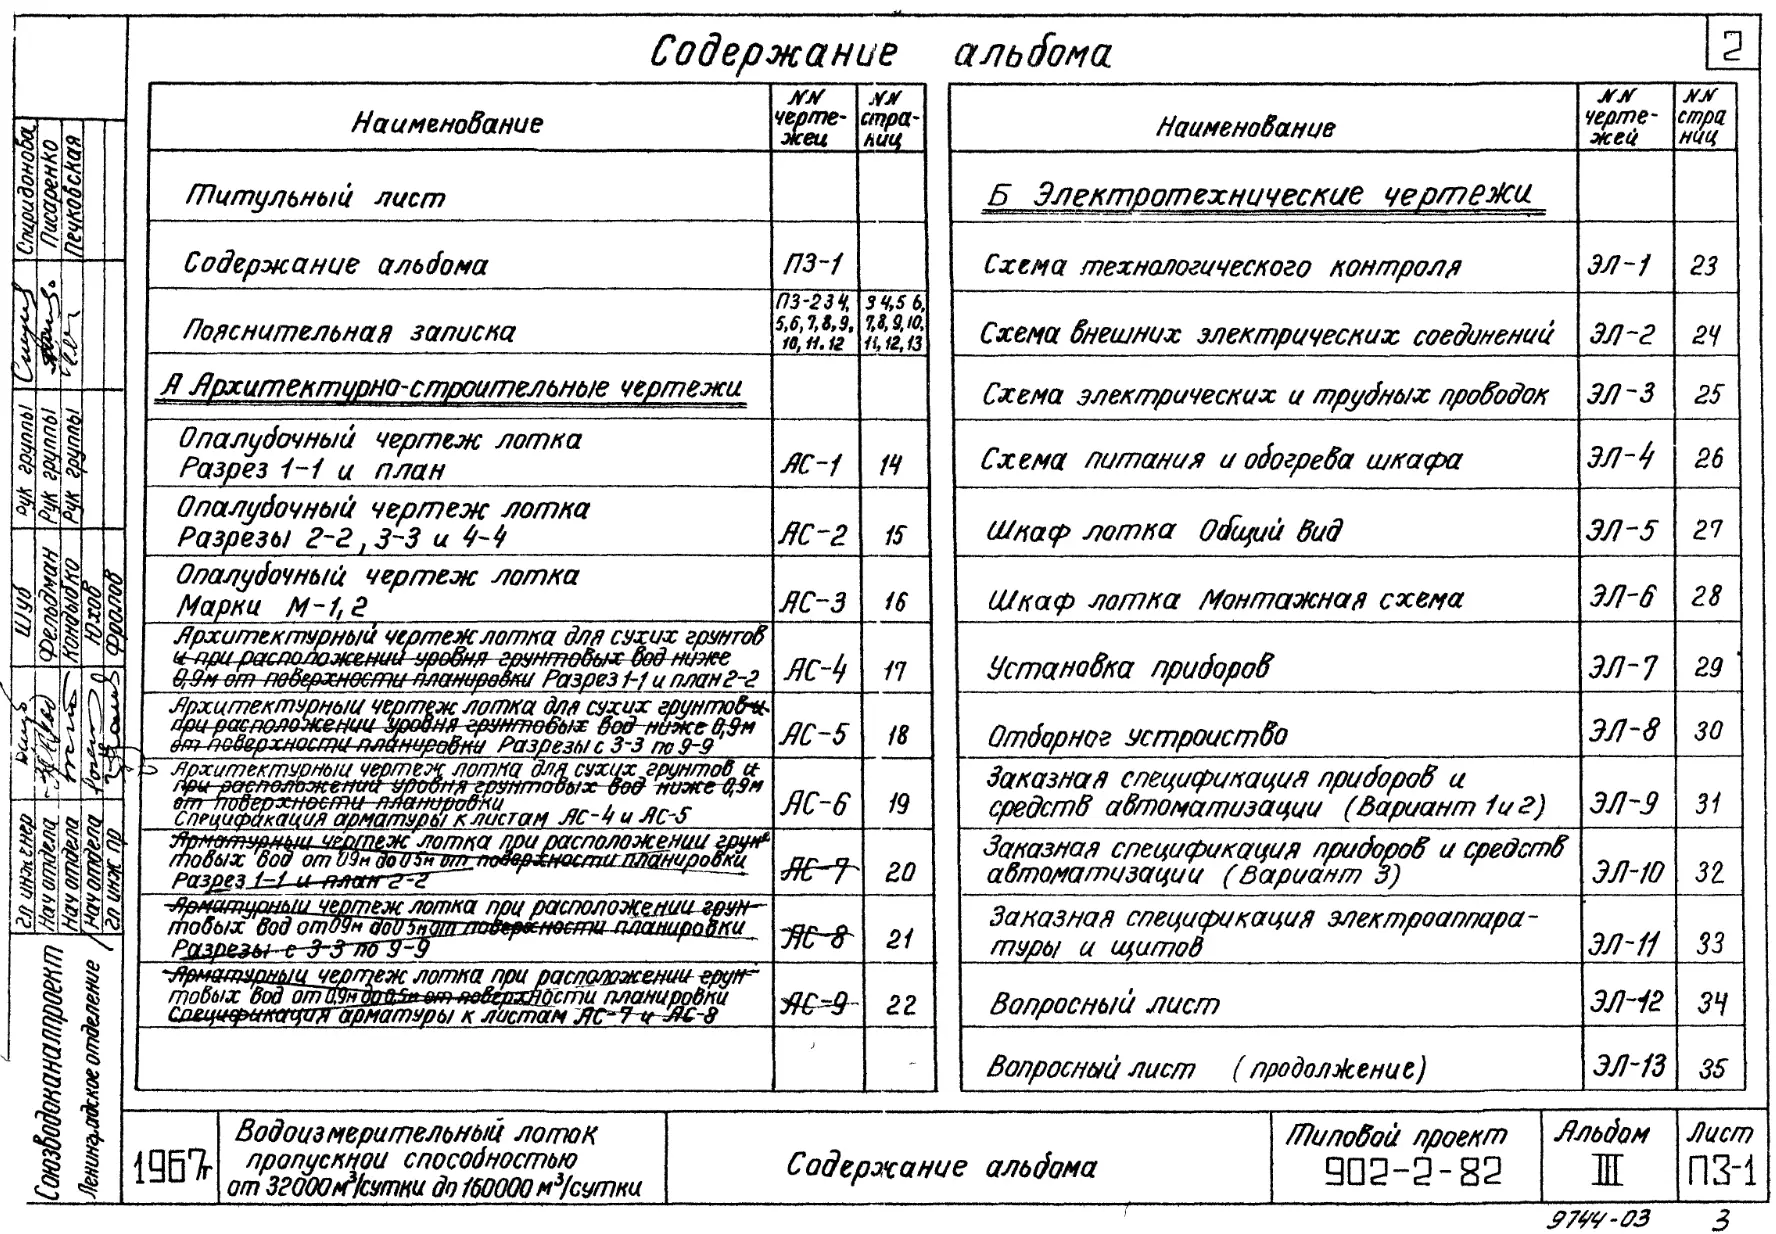 Содержание альбома
2
Наименование
NN чертежей
NN страниц
Титульный лист
Содержание альбома ПЗ-1
Пояснительная записка ПЗ-2 3 4, 5,6,7,8,9, 10, 11. 12 3 4,5 6, 7,8,9,10, 11,12,13
А Архитектурно-строительные чертежи
Опалубочный чертеж лотка
Разрез 1-1 и план АС-1 14
Опалубочный чертеж лотка
Разрезы 2-2, 3-3 и 4-4 АС-2 15
Опалубочный чертеж лотка
Марки М-1,2 АС-3 16
Архитектурный чертеж лотка для сухих грунтов
и при расположении уровня грунтовых вод ниже
0,9м от поверхности планировки Разрез 1-1 и план 2-2 АС-4 17
Архитектурный чертеж лотка для сухих грунтов и
при расположении уровня грунтовых вод ниже 0,9м
от поверхности планировки Разрезы с 3-3 по 9-9 АС-5 18
Архитектурный чертеж лотка для сухих грунтов и
при расположении уровня грунтовых вод ниже 0,9м
от поверхности планировки
Спецификация арматуры к листам АС-4 и АС-5 АС-6 19
Арматурный чертеж лотка при расположении грун-
товых вод от 0,9м до 0,5м от поверхности планировки
Разрез 1-1 и план 2-2 АС-7 20
Арматурный чертеж лотка при расположении грун-
товых вод от 0,9м до 0,5м от поверхности планировки
Разрезы с 3-3 по 9-9 АС-8 21
Арматурный чертеж лотка при расположении грун-
товых вод от 0,9м до 0,5м от поверхности планировки
Спецификация арматуры к листам АС-7 и АС-8 АС-9 22
Наименование
NN чертежей
NN страниц
Б Электротехнические чертежи
Схема технологического контроля ЭЛ-1 23
Схема внешних электрических соединений ЭЛ-2 24
Схема электрических и трубных проводок ЭЛ-3 25
Схема питания и обогрева шкафа ЭЛ-4 26
Шкаф лотка Общий вид ЭЛ-5 27
Шкаф лотка Монтажная схема ЭЛ-6 28
Установка приборов ЭЛ-7 29
Отборное устройство ЭЛ-8 30
Заказная спецификация приборов и
средств автоматизации (Вариант 1 и 2) ЭЛ-9 31
Заказная спецификация приборов и средств
автоматизации (Вариант 3) ЭЛ-10 32
Заказная спецификация электроаппара-
туры и щитов ЭЛ-11 33
Вопросный лист ЭЛ-12 34
Вопросный лист (продолжение) ЭЛ-13 35
Союзводоканалпроект
Ленинградское отделение
Гл инженер Шуб Рук группы Спиридонова
Нач отдела Фельдман Рук группы Писаренко
Нач отдела Кондыбко Рук группы Печковская
Нач отдела Юхов
Гл инж пр Фролов
1967г
Водоизмерительный лоток
пропускной способностью
от 32000м³/сутки до 160000м³/сутки
Содержание альбома
Типовой проект
902-2-82
Альбом
III
Лист
ПЗ-1
9744-03 3